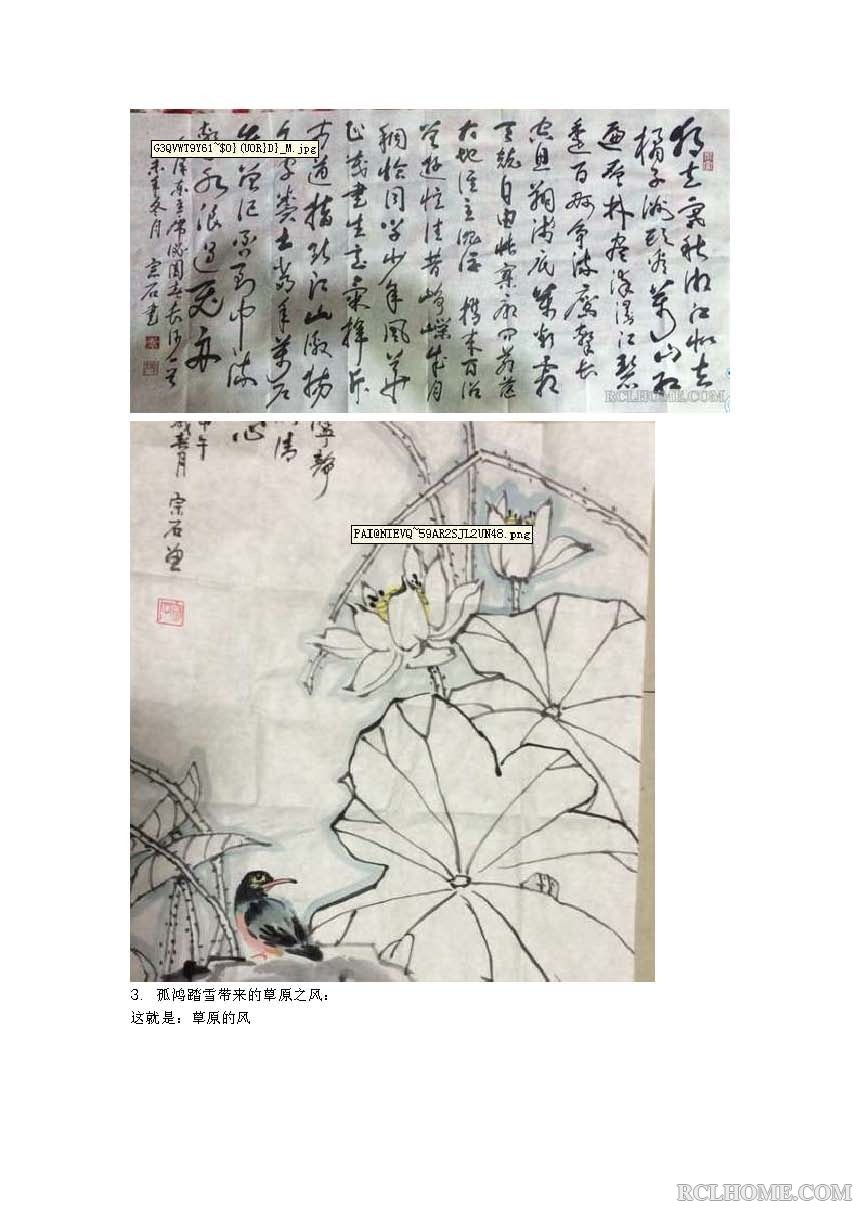 独立寒秋湘江北去
橘子洲头看万山红
遍层林尽染漫江碧
透百舸争流鹰击长
空鱼翔浅底万类霜
天竞自由怅寥廓问苍茫
大地谁主沉浮 携来百侣
曾游忆往昔峥嵘岁月
稠恰同学少年风华
正茂书生意气挥斥
方遒指点江山激扬
文字粪土当年万户
侯曾记否到中流
击水浪遏飞舟
泽东主席沁园春长沙一首
未年冬月 宗石书
G3QVWT9Y61~$O}(UOR}D}_M.jpg
RCLHOME.COM
宁静
清
心
甲午
春月 宗石画
PAI@NIEVQ~59AR2SJL2UN48.png
3. 孤鸿踏雪带来的草原之风：
这就是：草原的风
RCLHOME.COM